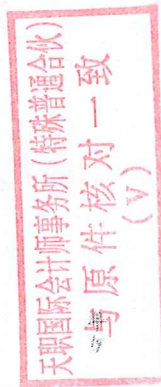 天职国际会计师事务所(特殊普通合伙)
与原件核对一致
(V)